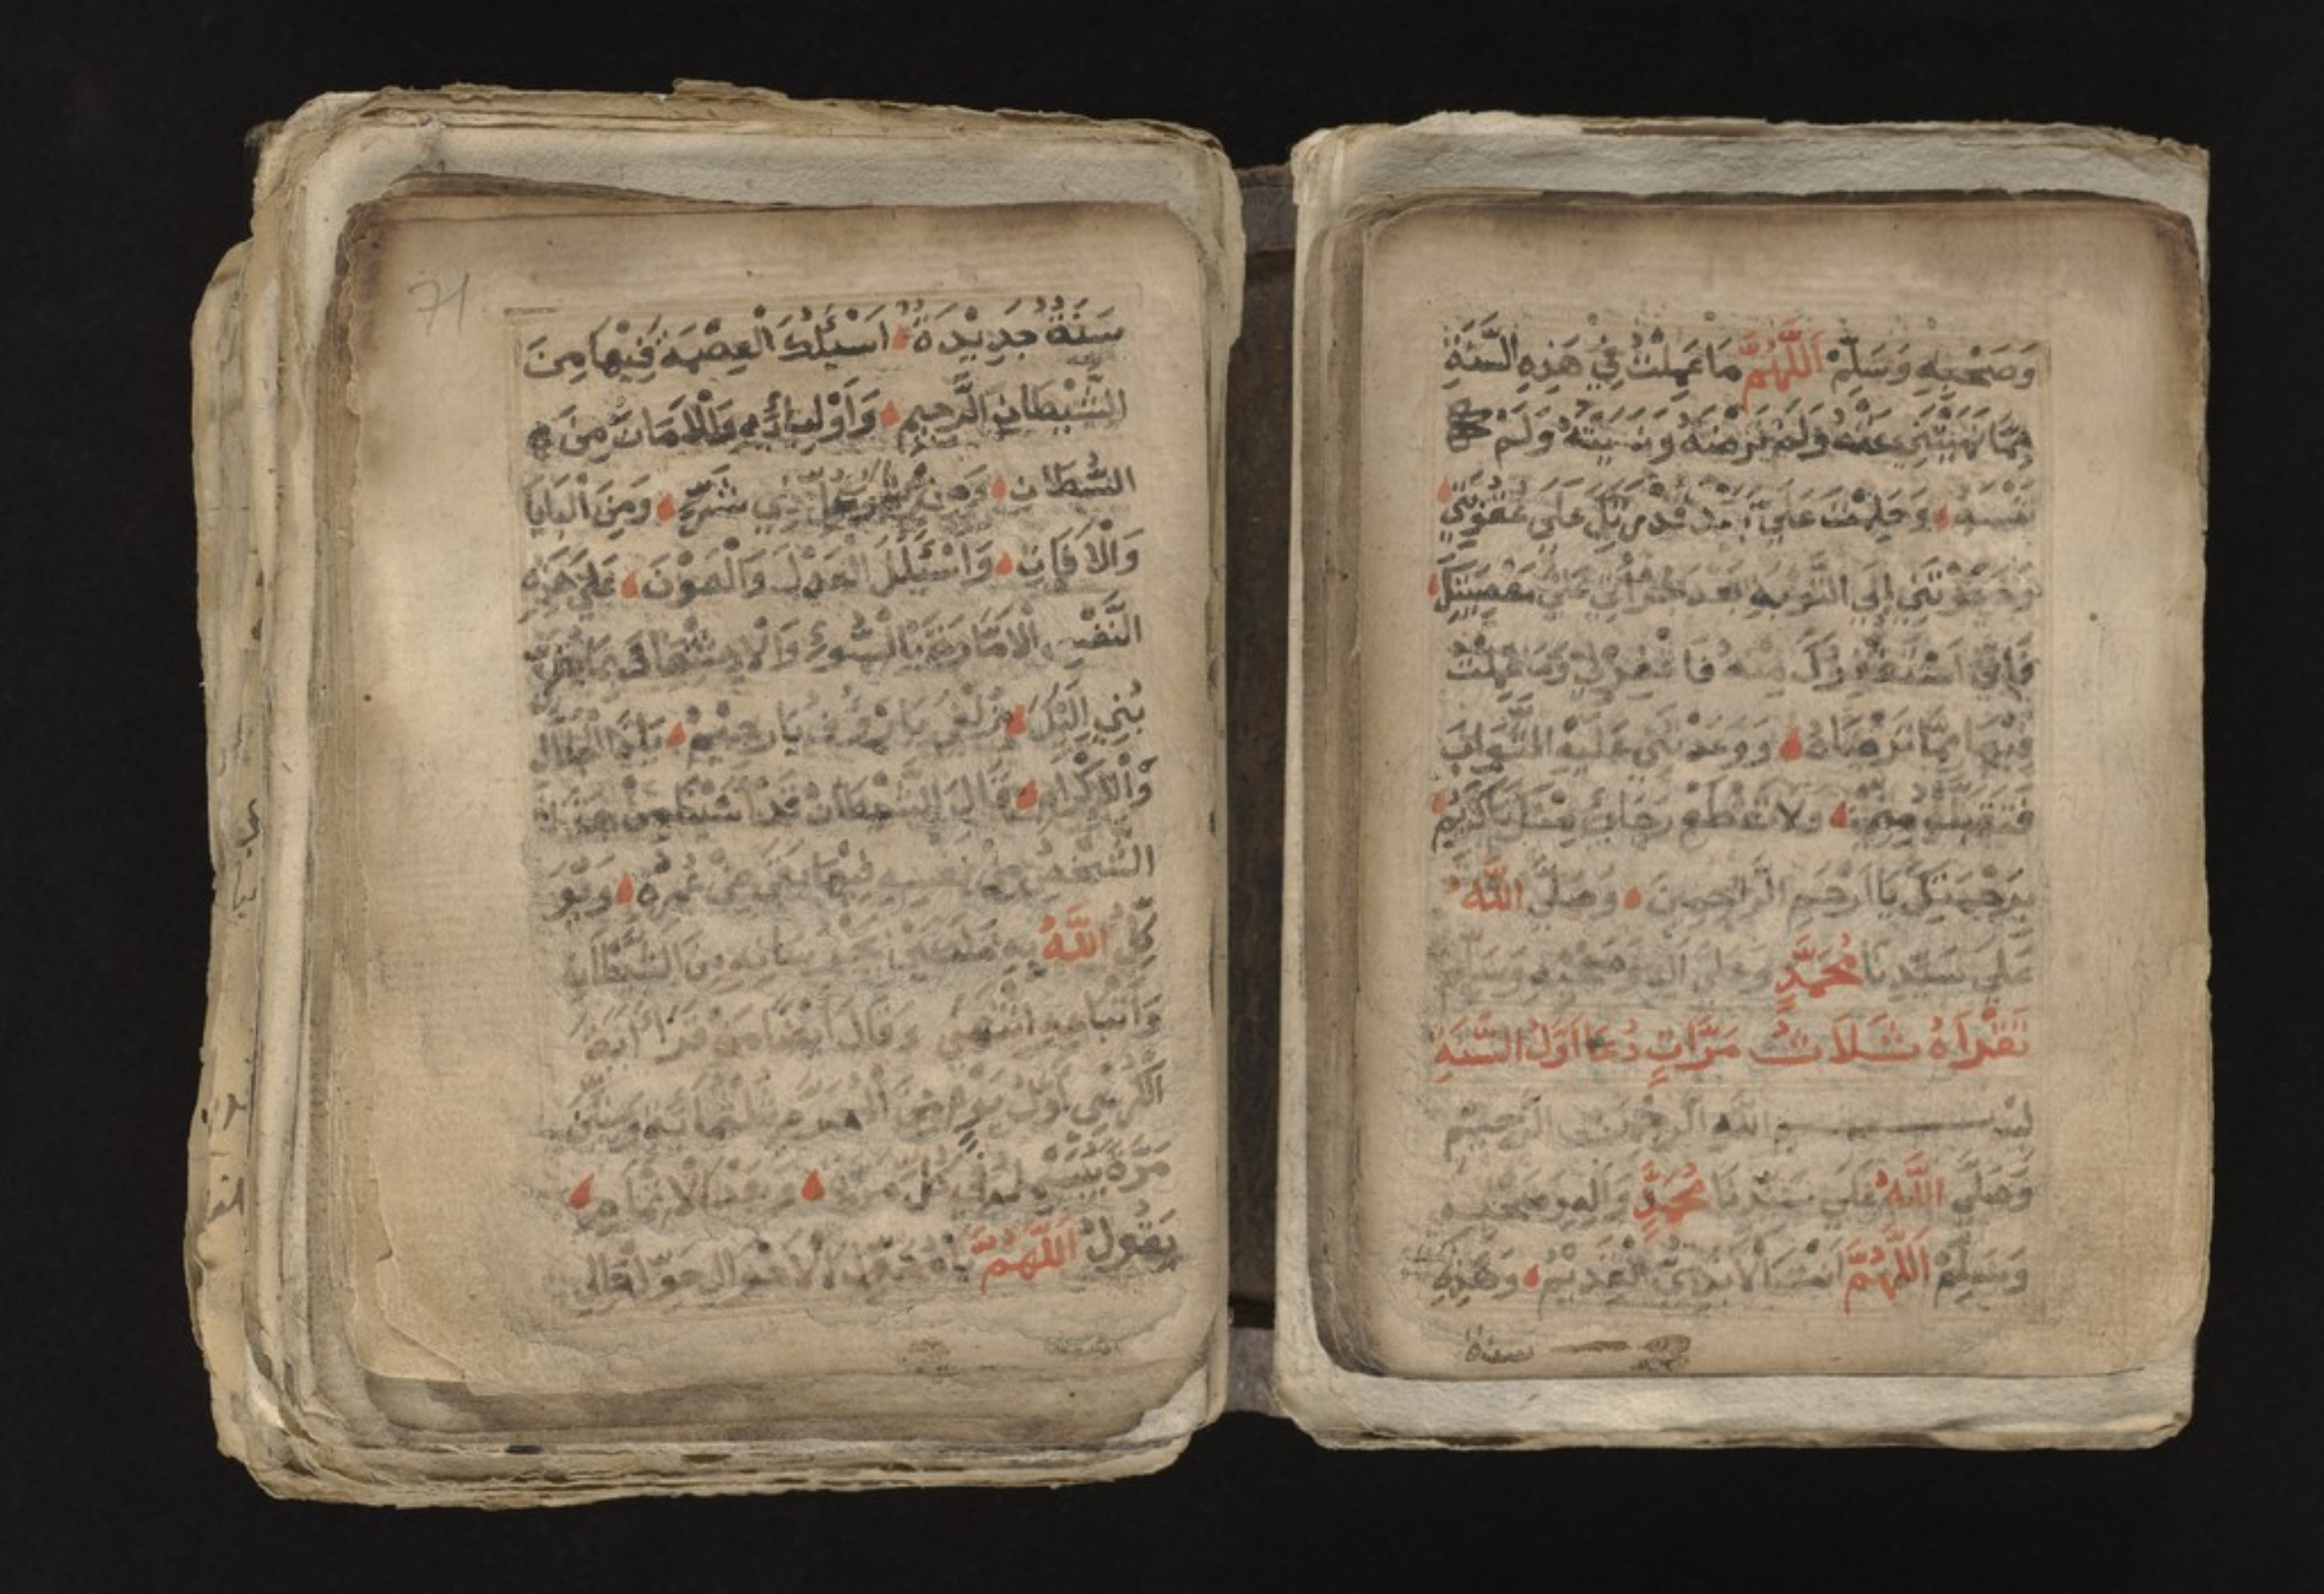 وَصَحْبِهِ وَسَلِّمْ اَللَّهُمَّ مَا عَمِلْتُ فِي هَذِهِ السَّنَةِ
مِمَّا نَهَيْتَنِي عَنْهُ وَلَمْ تَرْضَهُ وَنَسِيتُهُ وَلَمْ
تَنْسَهُ وَحَلِمْتَ عَلَيَّ بَعْدَ قُدْرَتِكَ عَلَى عُقُوبَتِي
وَدَعَوْتَنِي إِلَى التَّوْبَةِ بَعْدَ جُرْأَتِي عَلَى مَعْصِيَتِكَ
فَإِنِّي اَسْتَغْفِرُكَ مِنْهُ فَاغْفِرْ لِي وَمَا عَمِلْتُ
فِيهَا مِمَّا تَرْضَاهُ وَوَعَدْتَنِي عَلَيْهِ الثَّوَابَ
فَتَقَبَّلْهُ مِنِّي وَلَا تَقْطَعْ رَجَائِي مِنْكَ يَا كَرِيمُ
بِرَحْمَتِكَ يَا اَرْحَمَ الرَّاحِمِينَ وَصَلَّى اللَّهُ
عَلَى سَيِّدِنَا مُحَمَّدٍ وَعَلَى آلِهِ وَصَحْبِهِ وَسَلَّمَ
تَقْرَأَهُ ثَلَاثَ مَرَّاتٍ دُعَا اَوَّلِ السَّنَةِ
بِسْمِ اللَّهِ الرَّحْمَنِ الرَّحِيمِ
وَصَلَّى اللَّهُ عَلَى سَيِّدِنَا مُحَمَّدٍ وَآلِهِ وَصَحْبِهِ
وَسَلِّمْ اَللَّهُمَّ اَنْتَ الْأَبَدِيُّ الْقَدِيْمُ وَهَذِهِ
سنة
71
سَنَةٌ جَدِيْدَةٌ اَسْئَلُكَ الْعِصْمَةَ فِيْهَا مِنَ
الشَّيْطَانِ الرَّجِيمِ وَاَوْلِيَائِهِ وَالْأَمَانَ مِنَ
السُّلْطَانِ وَمِنْ شَرِّ كُلِّ ذِي شَرٍّ وَمِنَ الْبَلَايَا
وَالْآفَاتِ وَاَسْئَلُكَ الْعَدْلَ وَالْعَوْنَ عَلَى هَذِهِ
النَّفْسِ الْأَمَّارَةِ بِالسُّوءِ وَالْاِشْتِغَالَ بِمَا يُقَرِّ
بُنِي إِلَيْكَ يَا رَؤُفُ يَا رَحِيْمُ يَا ذَا الْجَلَالِ
وَالْإِكْرَامِ قَالَ الشَّيْطَانُ قَدْ هَذَا
الشَّخْصُ عَلَى نَفْسِهِ فِيْهَا بَقِيَ مِنْ عُمْرِهِ وَيُوَ
كِّلُ اللَّهُ بِهِ مَلَكَيْنِ يَحْفَظَانِهِ مِنَ الشَّيْطَانِ
وَاَتْبَاعِهِ اِنْتَهَى وَقَالَ اَيْضًا مَنْ قَرَأَ آيَةَ
الْكُرْسِي اَوَّلَ يَوْمٍ مِنَ الْمُحَرَّمِ ثَلَثَمِائَةٍ وَسِتِّيْنَ
مَرَّةً كُلِّ مَرَّةٍ
يَقُولُ اَللَّهُمَّ يَا مُحَوِّلَ الْأَحْوَالِ حَوِّلْ حَالِي